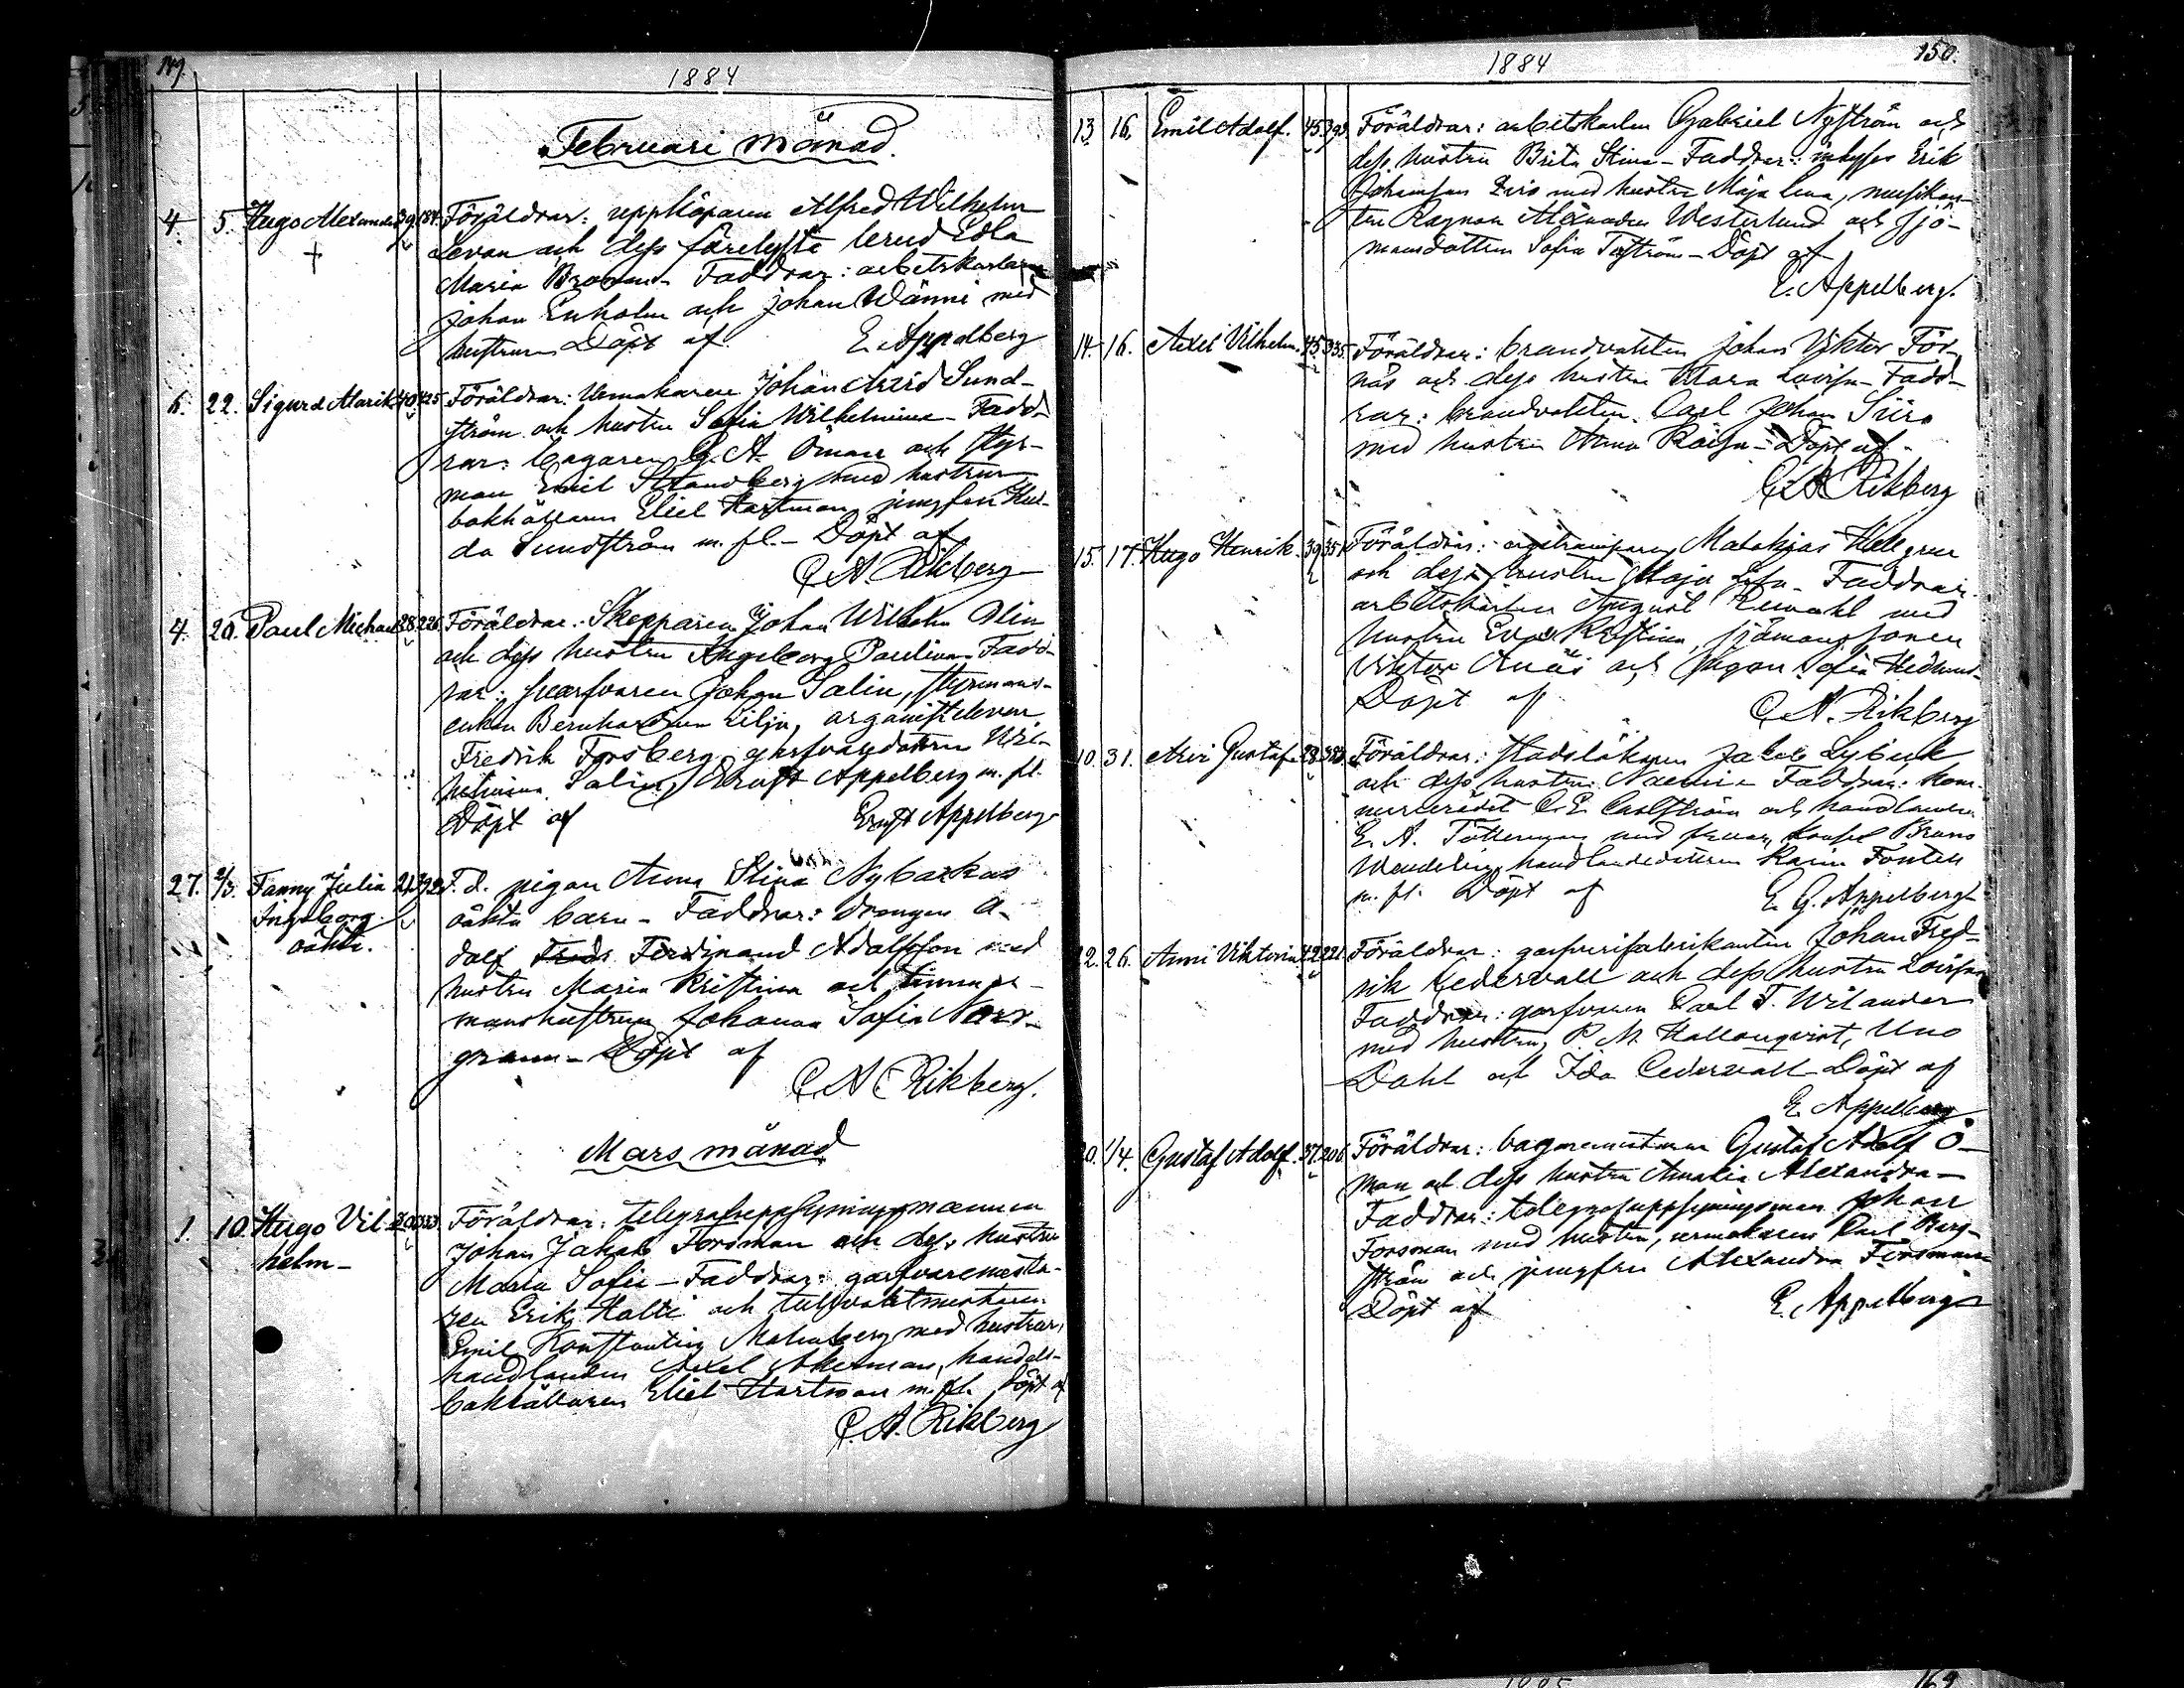 149.
1884
Februari månad.
4. 5. Hugo Alexander 39. 184. Föräldrar: uppköparen Alfred Wilhelm
+ Levon och dess förelysta brud Edla
Maria Broman - Faddrar: arbetskarlarne
Johan Enholm och Johan Wänni med
hustrur Döpt af E. Appelberg
6. 22. Sigurd Alarik 40. 425 Föräldrar: Urmakaren Johan Arvid Sund-
ström och hustru Sofia Wilhelmina - Fadd-
rar: bagaren G. A. Öman och styr-
man Emil Strandberg med hustrur
bokhållaren Eliel Hartman, jungfru Hul-
da Sundström m. fl. - Döpt af
C A Rikberg
4. 20. Paul Michael 28. 226. Föräldrar: Skepparen Johan Wilhelm Olin
och dess hustru Ingeborg Paulina - Fadd-
rar: garfvaren Johan Salin, styrmans-
enkan Bernhardina Lilja, organisteleven
Fredrik Forsberg, garfvaredottren Wil-
helmina Salin, Ernst Appelberg m. fl.
Döpt af Ernst Appelberg
27. 2/3. Fanny Julia 21. 392. F. d. pigan Anna Stina Nybackas
Ingeborg oäkta barn - Faddrar: drengen A-
oäkta. dolf Ferdinand Adolfsson med
hustru Maria Kristina och timmer-
manshustrun Johanna Sofia Norr-
grann - Döpt af
C. A Rikberg.
Mars månad
1. 10. Hugo Vil- Föräldrar: telegrafuppsyningsmannen
helm - Johan Jakob Forsman och dess hustru
Maria Sofia - Faddrar: garfvaremästa-
ren Erik Halti och tullvaktmästaren
Emil Konstantin Malmberg med hustrur,
handlanden Axel Åkerman, handels-
bokhållaren Eliel Hartman m. fl. Döpt af
C. A. Rikberg
1884
150.
13. 16. Emil Adolf. 45. 393. Föräldrar: arbetskarlen Gabriel Nyström och
dess hustru Brita Stina - Faddrar: inhyses Erik
Johansson med hustru Maja Lena, musikan-
ten Ragnar Alexander Westerlund och sjö-
mansdottren Sofia - Döpt af
E. Appelberg.
14. 16. Axel Vilhelm. 45. 335. Föräldrar: brandvakten Johan Viktor För-
näs och dess hustru Lovisa - Fadd-
rar: brandvakten Carl Johan Siiro
med hustru Anna Kaisa - Döpt af
C A Rikberg
15. 17. Hugo Henrik. 39. 351 Föräldrar: Matthias Hellgren
och dess hustru Maja - Faddrar:
arbetskarlen August med
hustru Eva Kristina, sjömanssonen
Viktor och pigan Sofia Hedlund -
Döpt af C A. Rikberg
10. 31. Arvi Gustaf. 28. Föräldrar: Stadsläkaren Jakob Lybeck
och dess hustru Naemi - Faddrar: kom-
merserådet C. E. Carlström och handlanden
E. A. med fruar, konsul Bruno
Wendelin, handlandedottren Karin Fontell
m. fl. Döpt af E. G. Appelberg
22. 26. Anni Viktoria 42. 221. Föräldrar: garfverifabrikanten Johan Fred-
rik Cedervall och dess hustru Lovisa
Faddrar: garfvaren Carl F. Wilander
med hustru, P. N. Hallonqvist, Uno
Dahl och Ida Cedervall Döpt af
E. Appelberg
20. 1/4. Gustaf Adolf. 37. 206. Föräldrar: bagaremästaren Gustaf Adolf Ö-
man och dess hustru Amalia Alexandra -
Faddrar: telegrafuppsyningsman Johan
Forsman med hustru, urmakaren Carl Berg-
ström och jungfru Alexandra Forsman -
Döpt af E. Appelberg
169